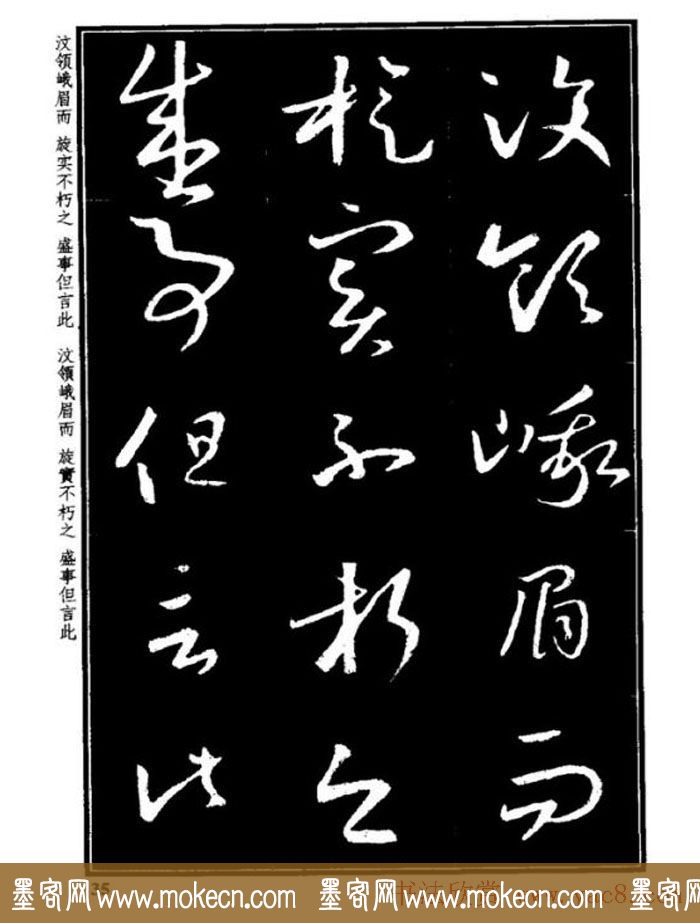 汶領峨眉而
旋实不朽之
盛事但言此
汶领峨眉而 旋实不朽之 盛事但言此
汶領峨眉而 旋實不朽之 盛事但言此
35
墨客网 www.mokecn.com 墨客网 www.mokecn.com 墨客网 www.mokecn.com 墨客网
书法欣赏